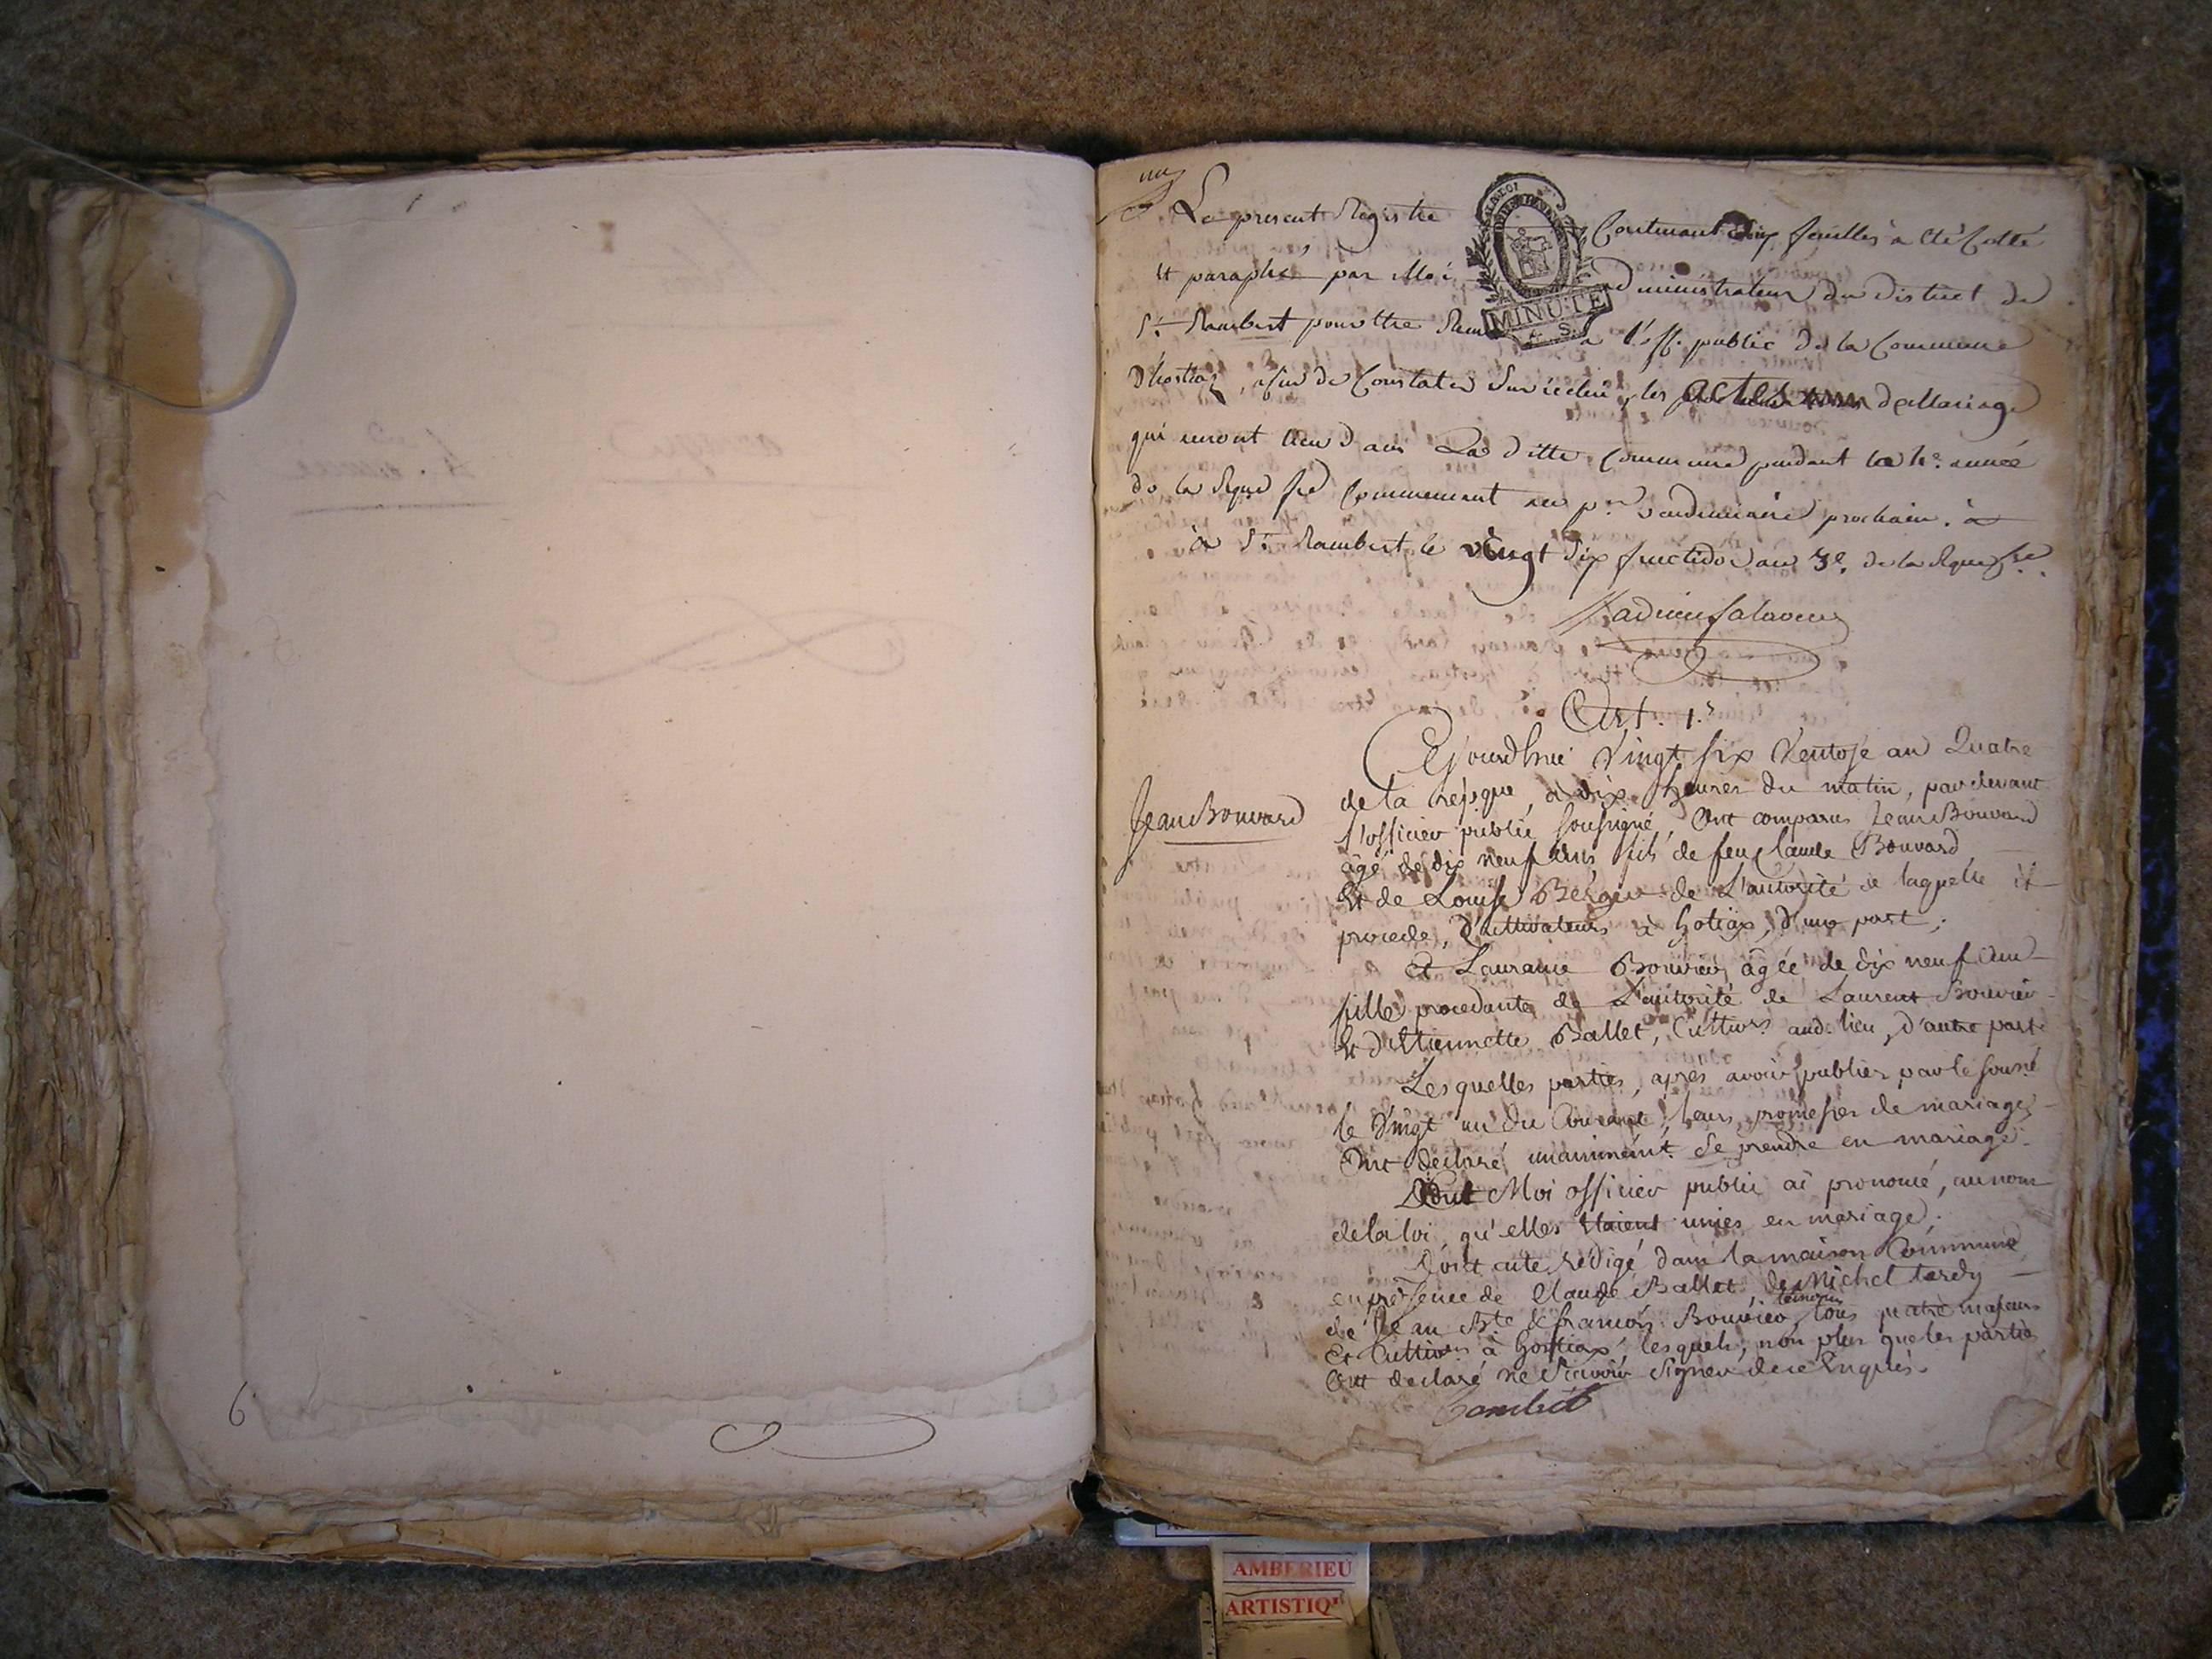 6
un
Le present Registre Contenant dix feuilles a été Cotté
et paraphé par Moi administrateur du district de
St. Rambert pour être Remis a l'off. public de la Commune
D'hostiaz, afin de Constater Sur icelui, les actes de Mariage
qui seront lieu dans La ditte Commune pendant la 4e. année
de la Repue fse Commencant au pr. vendemiaire prochain. à
à St. Rambert le vingt Six fructidor an 3e. de la Repue fse.
LA LOI
MINUTE
4 S.
Art. 1.r
Cejourdhui Vingt six Ventose an Quatre
de la repque, a dix heures du matin, pardevant
Jean Bouvard
l'officier public sousigné, Ont comparus Jean Bouvard
âgé de dix neuf ans, fils de feu Claude Bouvard
Et de Louise Berger de L'autorité de laquelle il
procede, Cultivateurs à hotiax, d'une part;
Et Lauranne Bouvier, âgée de dix neuf ans
fille procedante de L'autorité de Laurent Bouvier
Et d'Etiennette Ballet, Cultivrs. aud. lieu, d'autre part
Lesquelles parties, après avoir publier par le sousné
le Vingt un du Courant, leurs promesses de mariage,
Ont declaré unaniment. Se prendre en mariage.
Dont Moi officier public ai prononcé, au nom
de la loi, qu'elles Etaient unies en mariage.
Dont acte rédigé dans la maison Commune
en présence de Claude Ballet, de Michel tardy
de Jean Bte. & francois Bouvier, temoins tous quatre majeurs
Et Cultivrs. à hostiax, lesquels, non plus que les parties
Ont declaré ne Sçavoir Signer de ce Enquis.
AMBERIEU
ARTISTIQ